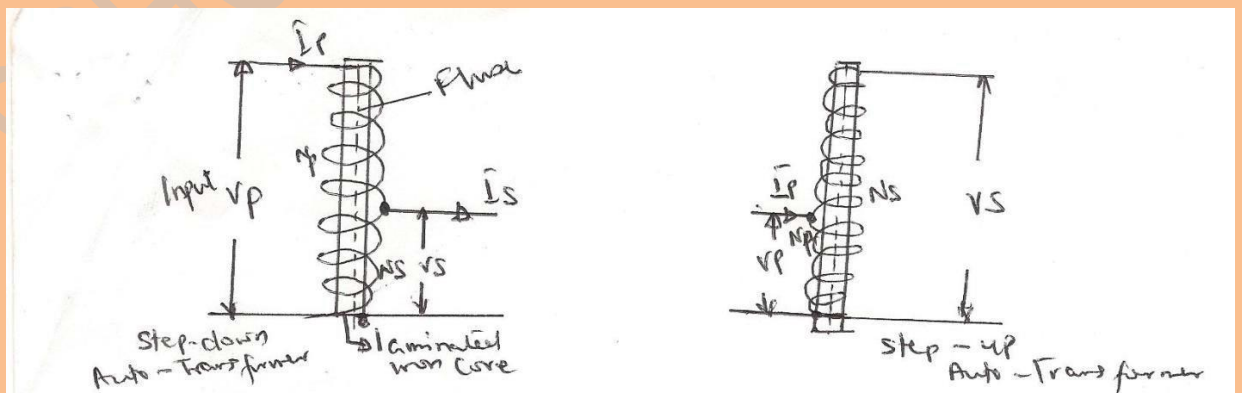 Ip
Flux
Np
Input Vp
Is
Ns Vs
Step-down
Auto-Transformer
laminated
iron core
Ip
Np
Vp
Ns
Vs
Step-up
Auto-Transformer